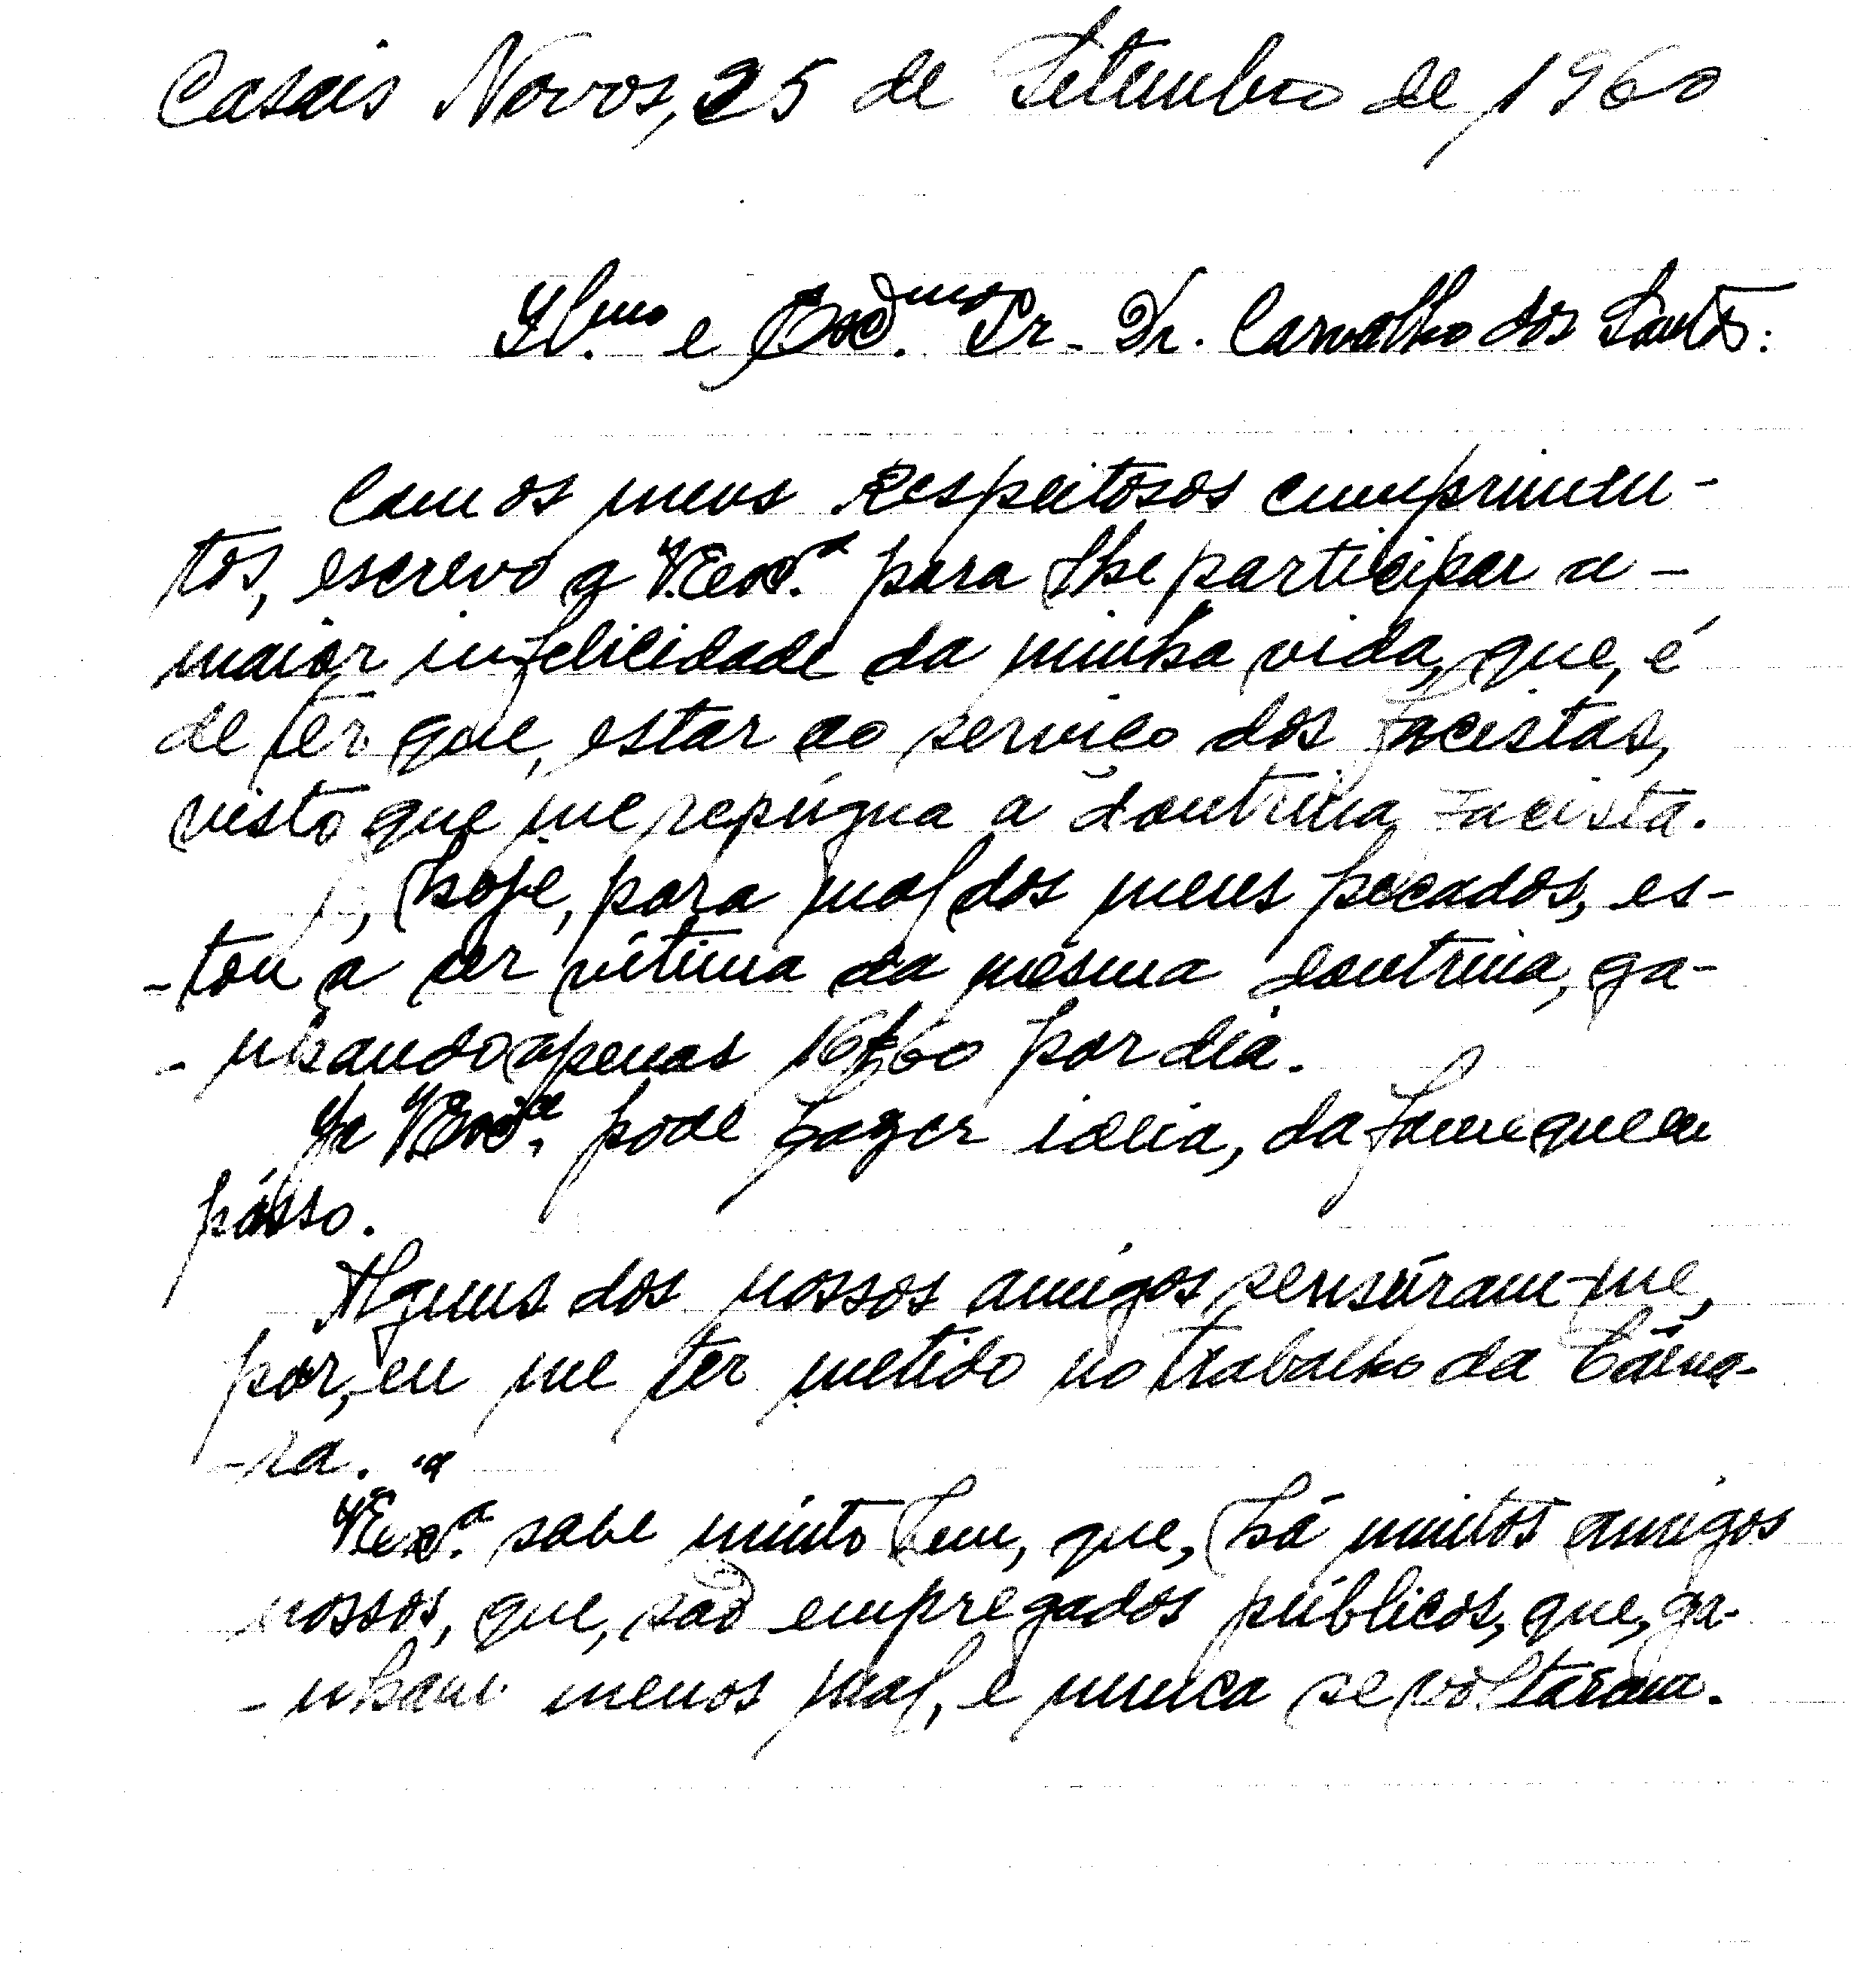 Casais Novos, 25 de Setembro de 1960
Il.mo e Exc.mo Sr. Dr. Carvalho dos Santos:
Com os meus Respeitosos cumprimen-
tos, escrevo a V.Exc.a para lhe participar a-
maior infelicidade da minha vida, que, é
de ter que, estar ao serviço dos facistas,
visto que me repúgna a doutrina facista.
, hoje, para mal dos meus pecados, es-
-tou a ser vítima da mesma doutrina, ga-
-nhando apenas 16$60 por dia.
Já V.Exc.a pode fazer ideia, da fome que eu
pásso.
Alguns dos nossos amigos sensúram-me,
por, eu me ter metido no trabalho da Câma-
-ra.
V.Exc.a sabe muito bem, que, há muitos amigos
nossos, que, são empregados públicos, que, ga-
-nham menos mal, e nunca se voltaram.